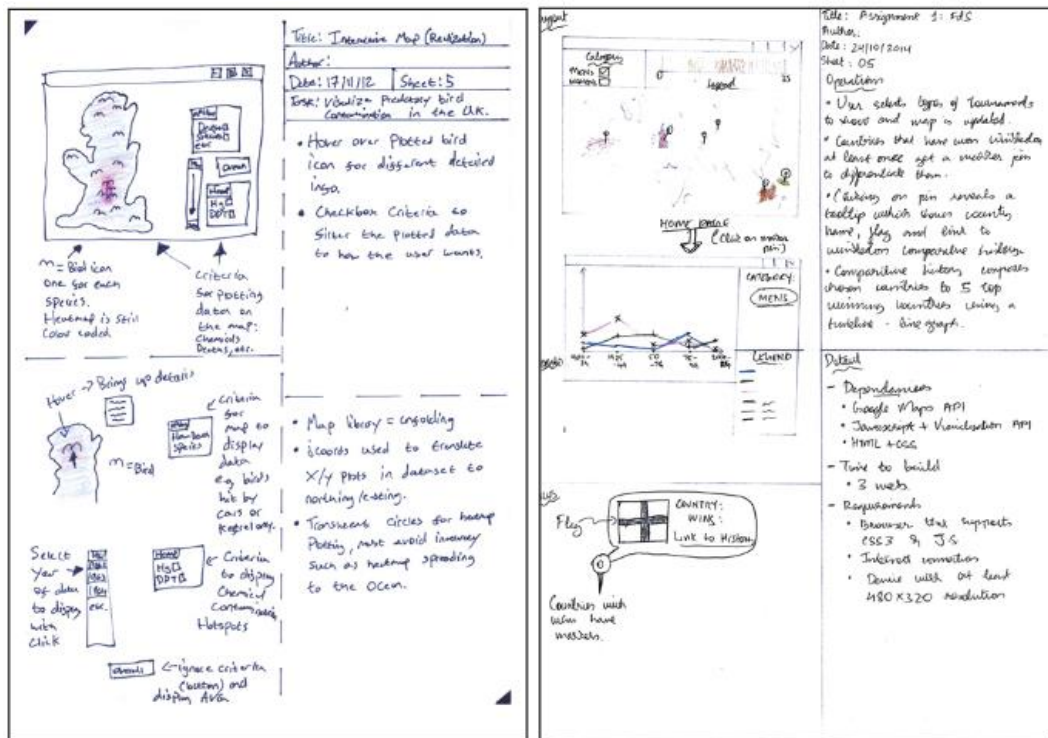 Title: Interactive Map (Realization)
Author:
Date: 17/11/12
Sheet: 5
Task: Visualize Predatory bird
Contamination in the UK.
• Hover over Plotted bird
icon for different detailed
info.
• Checkbox Criteria to
filter the plotted data
to how the user wants.
m = Bird icon
one for each
species.
Heatmap is still
Color coded
Criteria
for plotting
data on
the map:
Chemicals
Deaths, etc.
Hover → Bring up details
m = Bird
Species
Criteria
for
map to
display
data
e.g birds
hit by
cars or
Select
Year
of data
to display
with
Click
Hg
DPT
Criteria
to display
Chemical
Contamination
Hotspots
ignore criteria
(button) and
display AVG
• Map library = unfolding
• jcoords used to translate
X/Y plots in dataset to
northing/easting.
• Transparent circles for heatmap
Plotting, must avoid
such as heatmap spreading
to the Ocean.
Title: Assignment 1: FdS
Author:
Date: 24/10/2014
Sheet: 05
Category
MENS
WOMENS
0
25
Legend
HOME PAGE
(Click on marker
pin)
CATEGORY:
MENS
LEGEND
Operations
• User selects types of tournaments
to show and map is updated.
• Countries that have won wimbledon
at least once get a marker pin
to differentiate them.
• Clicking on pin reveals a
tooltip which shows country
name, flag and link to
wimbledon comparative history.
• Comparitive history compares
chosen countries to 5 top
winning countries using a
timeline - line graph.
Flag
COUNTRY:
WINS:
Link to History
Countries with
wins have
markers.
Detail
- Dependencies
• Google Maps API
• Javascript + Visualisation API
• HTML + CSS
- Time to build
• 3 weeks
- Requirements
• Browser that supports
CSS3 & JS
• Internet connection
• Device with at least
480x320 resolution